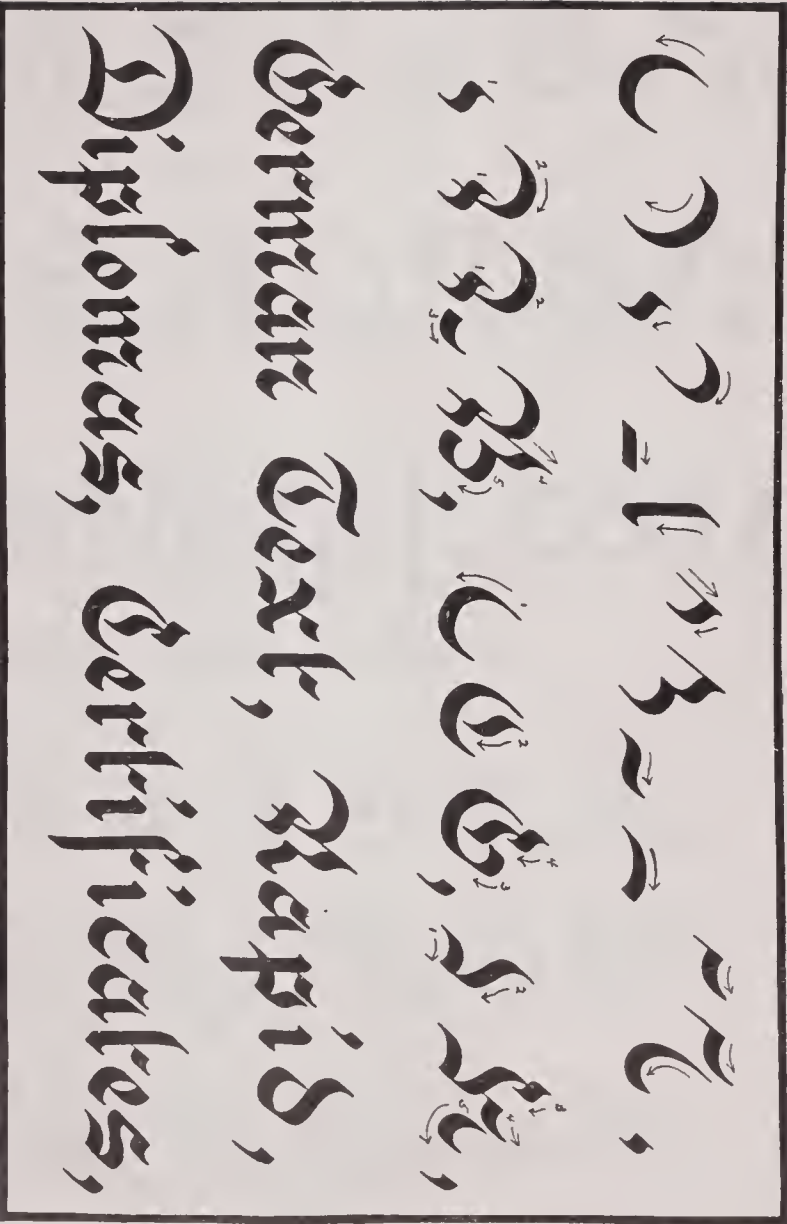 German Text, Rapid,
Diplomas, Certificates,